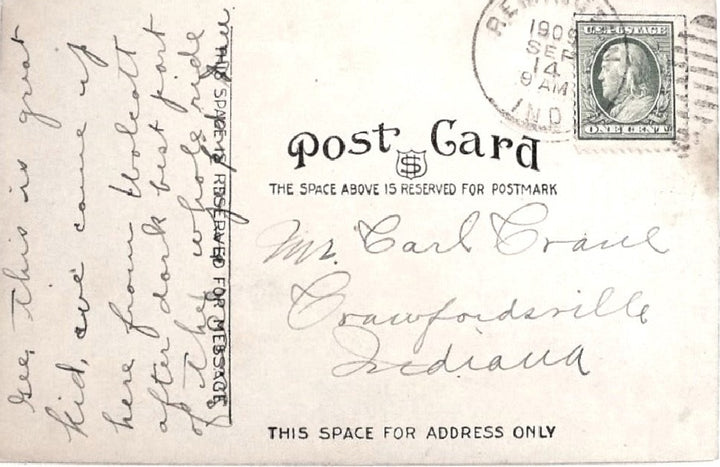 gee, this is great
kid, we came up
here from Wolcott
after dark best part
of the whole ride
THIS SPACE IS RESERVED FOR MESSAGE
1909
SEP
14
AM
IND
U.S. POSTAGE
ONE CENT
Post Card
THE SPACE ABOVE IS RESERVED FOR POSTMARK
Mr. Carl Crane
Crawfordsville
Indiana
THIS SPACE FOR ADDRESS ONLY